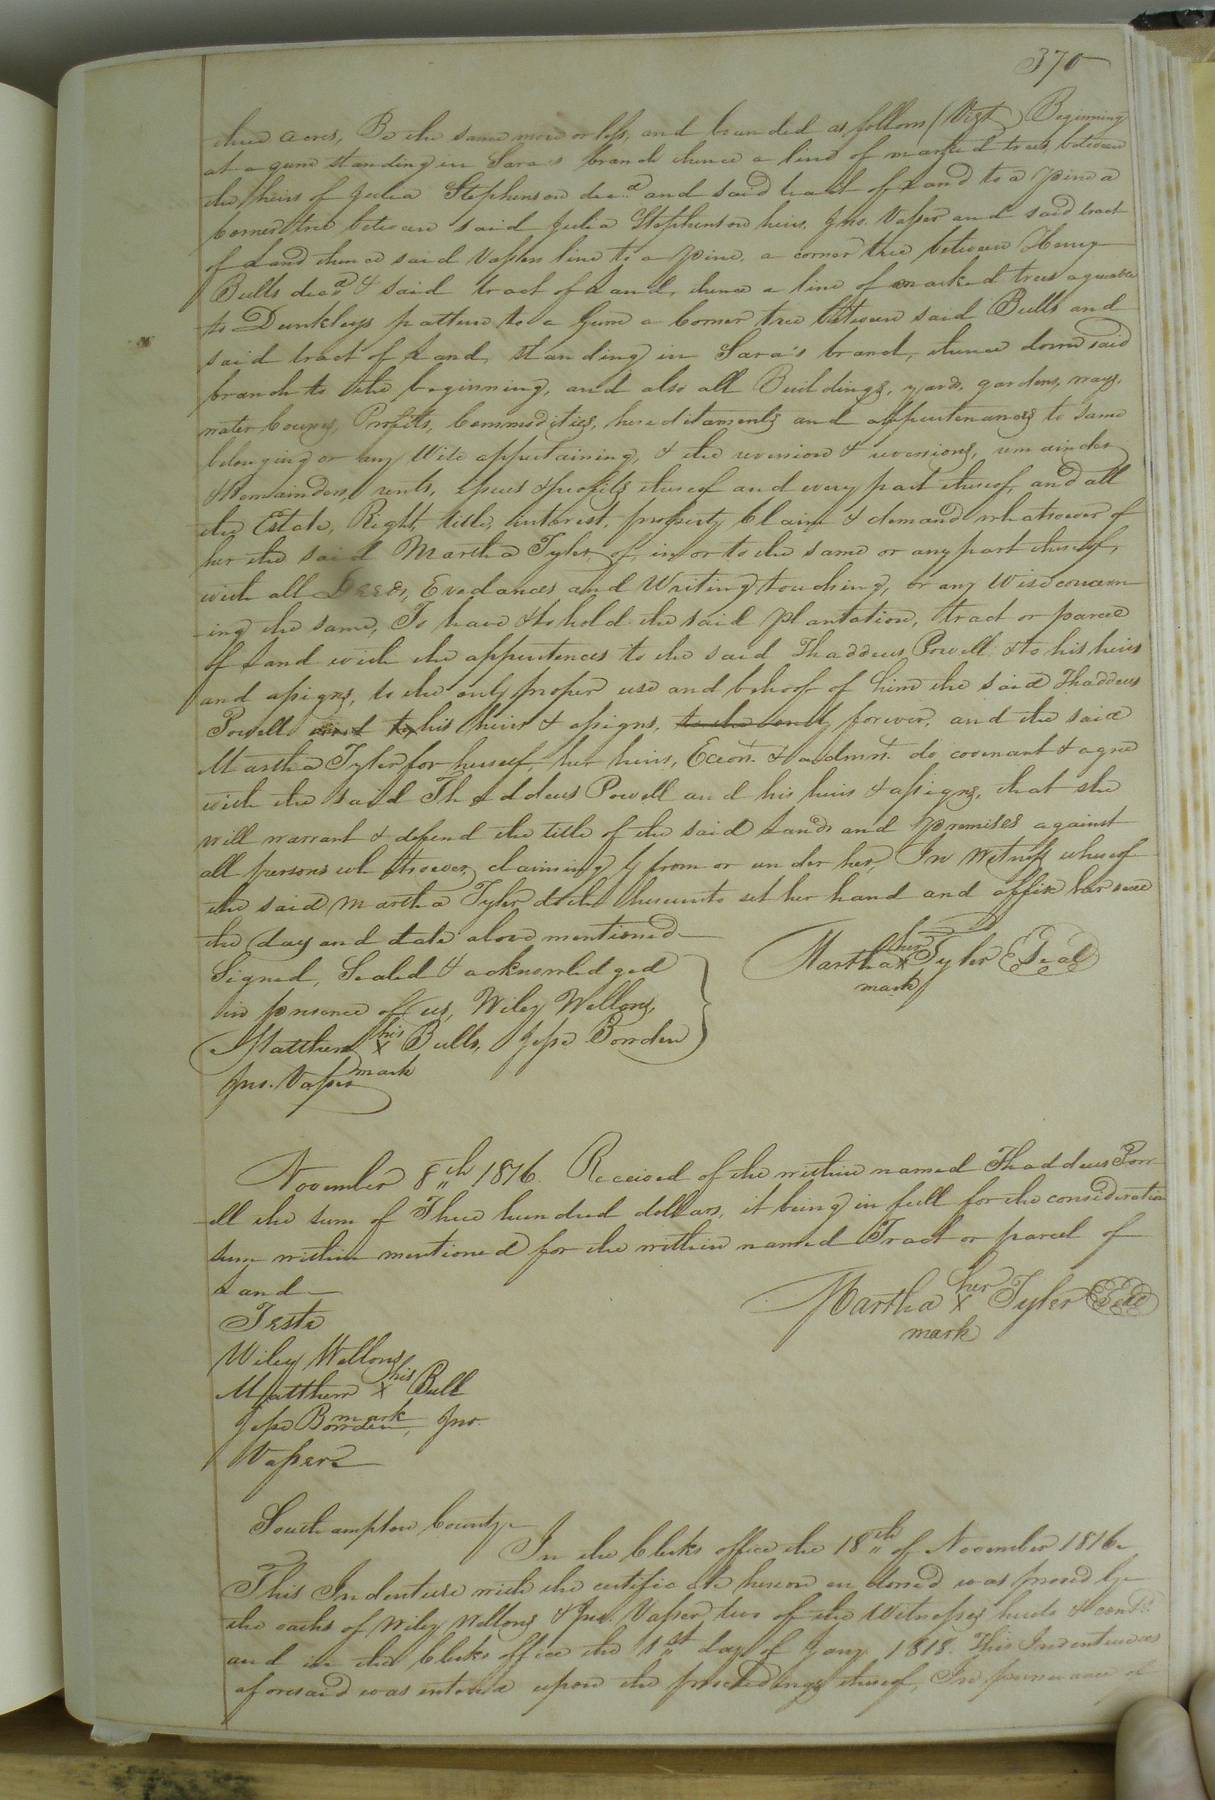 370
three acres, Be the same more or less, and bounded as follows (Vizt) Beginning
at a gum standing in Sara's branch thence a line of marked trees between
the heirs of Julia Stephenson decd. and said tract of Land to a pine a
corner tree between said Julia Stephenson heirs, Jno. Vasser and said tract
of Land thence said Vassers line to a pine, a corner tree between Henry
Bulls decd. & said tract of Land, thence a line of marked trees agreeable
to Dunkleys pattern to a Gum a corner tree between said Bulls and
said tract of Land, standing in Sara's branch, thence down said
branch to the beginning, and also all Buildings, yards, gardens, ways,
water Courses, Profits, Commodities, hereditaments and appurtenances to same
belonging or any Wise appertaining, & the reversion & reversions, remainder
& Remainders, rents, issues & profits thereof and every part thereof, and all
the Estate, Right, title, interest, property Claim & demand whatsoever of
her the said Martha Tyler, of in or to the same or any part thereof,
with all Deeds, Evedances and Writing, touching, or any Wise concern
ing the same, To have & to hold the said Plantation, tract or parcel
of Land with the appurtences to the said Thaddeus Powell & to his heirs
and assigns, to the only proper use and behoof of him the said Thaddeus
Powell and to his heirs & assigns, to the only forever, and the said
Martha Tyler for herself, her heirs, Exors. & admrs. do covenant & agree
with the said Thaddeus Powell and his heirs & assigns, that she
will warrant & defend the title of the said Lands and Premises against
all persons whatsoever, claiming by from or under her, In Witness whereof
the said Martha Tyler doth hereunto set her hand and affix her seal
the day and date above mentioned
Signed, Sealed & acknowledged
in presence of us, Wiley Wellons,
Matthew his X mark Bulls, Jesse Bowden
Jno. Vasser
Martha her X mark Tyler Seal
November 8th 1816. Received of the within named Thaddeus Pow
ell the sum of Three hundred dollars, it being in full for the consideration
sum within mentioned for the within named Tract or parcel of
Land
Martha her X mark Tyler Seal
Teste
Wiley Wellons
Matthew his X mark Bull
Jesse Bowden, Jno.
Vasser
Southampton County
In the Clerks office the 18th of November 1816
This Indenture with the certificate hereon endorsed was proved by
the oaths of Wiley Wellons & Jno. Vasser two of the Witnesses hereto & contd.
and in the Clerks office the 1st day of Jany. 1818. This Indenture as
aforesaid was entered upon the proceedings thereof, In pursuance of